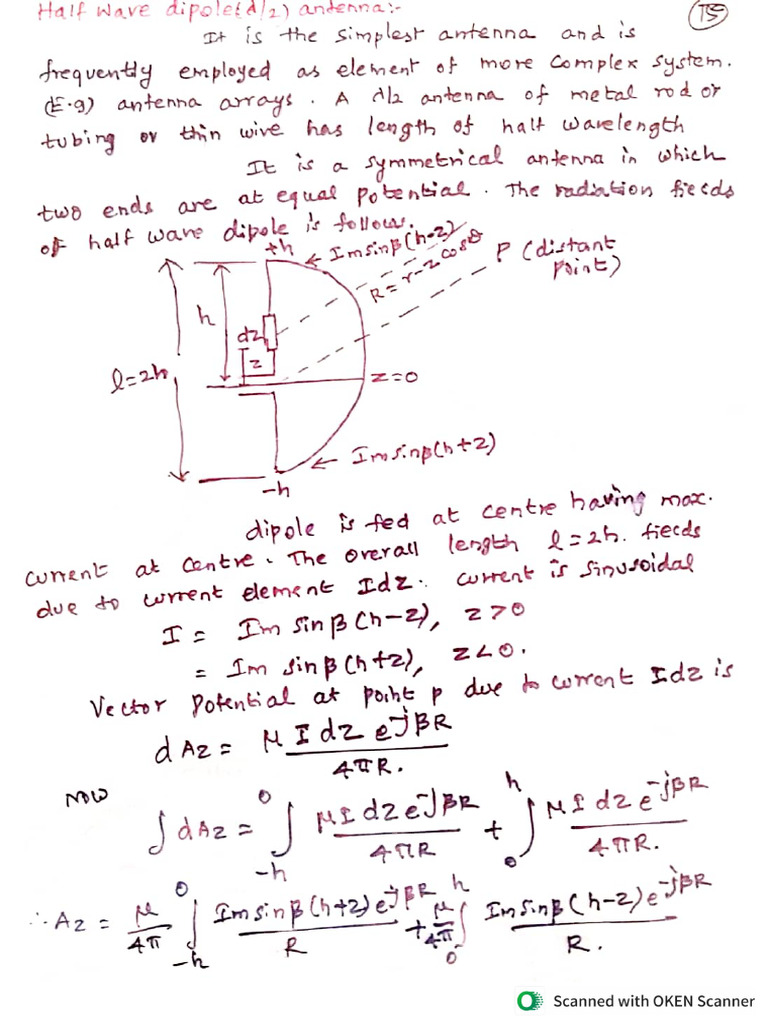 Half wave dipole(λ/2) antenna:-
75
It is the simplest antenna and is
frequently employed as element of more complex system.
(E.g) antenna arrays. A λ/2 antenna of metal rod or
tubing or thin wire has length of half wavelength
It is a symmetrical antenna in which
two ends are at equal potential. The radiation fields
of half wave dipole is follow.
+h
Im sin β(h-z)
R = r-z cosθ
P (distant
point)
h
dz
z
l=2h
z=0
Im sin β(h+z)
-h
dipole is fed at centre having max.
current at centre. The overall length l=2h. fields
due to current element Idz. current is sinusoidal
I = Im sin β (h-z), z>0
= Im sin β (h+z), z<0.
Vector potential at point p due to current Idz is
dAz = μ I dz e^-jβR / 4πR.
Now
∫dAz = ∫_-h^0 μI dz e^-jβR / 4πR + ∫_0^h μI dz e^-jβR / 4πR.
∴ Az = μ/4π ∫_-h^0 Im sin β (h+z) e^-jβR / R + μ/4π ∫_0^h Im sin β (h-z) e^-jβR / R.
Scanned with OKEN Scanner